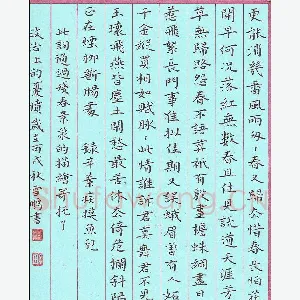 更能消幾番風雨匆匆春又歸去惜春長怕花
開早何況落紅無數春且住見說道天涯芳
草無歸路怨春不語算祇有殷勤畫檐蛛網盡日
惹飛絮長門事準擬佳期又誤蛾眉曾有人妒
千金縱買相如賦脈脈此情誰訴君莫舞君不見
玉環飛燕皆塵土閒愁最苦休去倚危欄斜陽
正在煙柳斷腸處 錄辛棄疾摸魚兒
此詞通過殘春景象的描繪寄托了
政治上的憂憤 戌秋 書